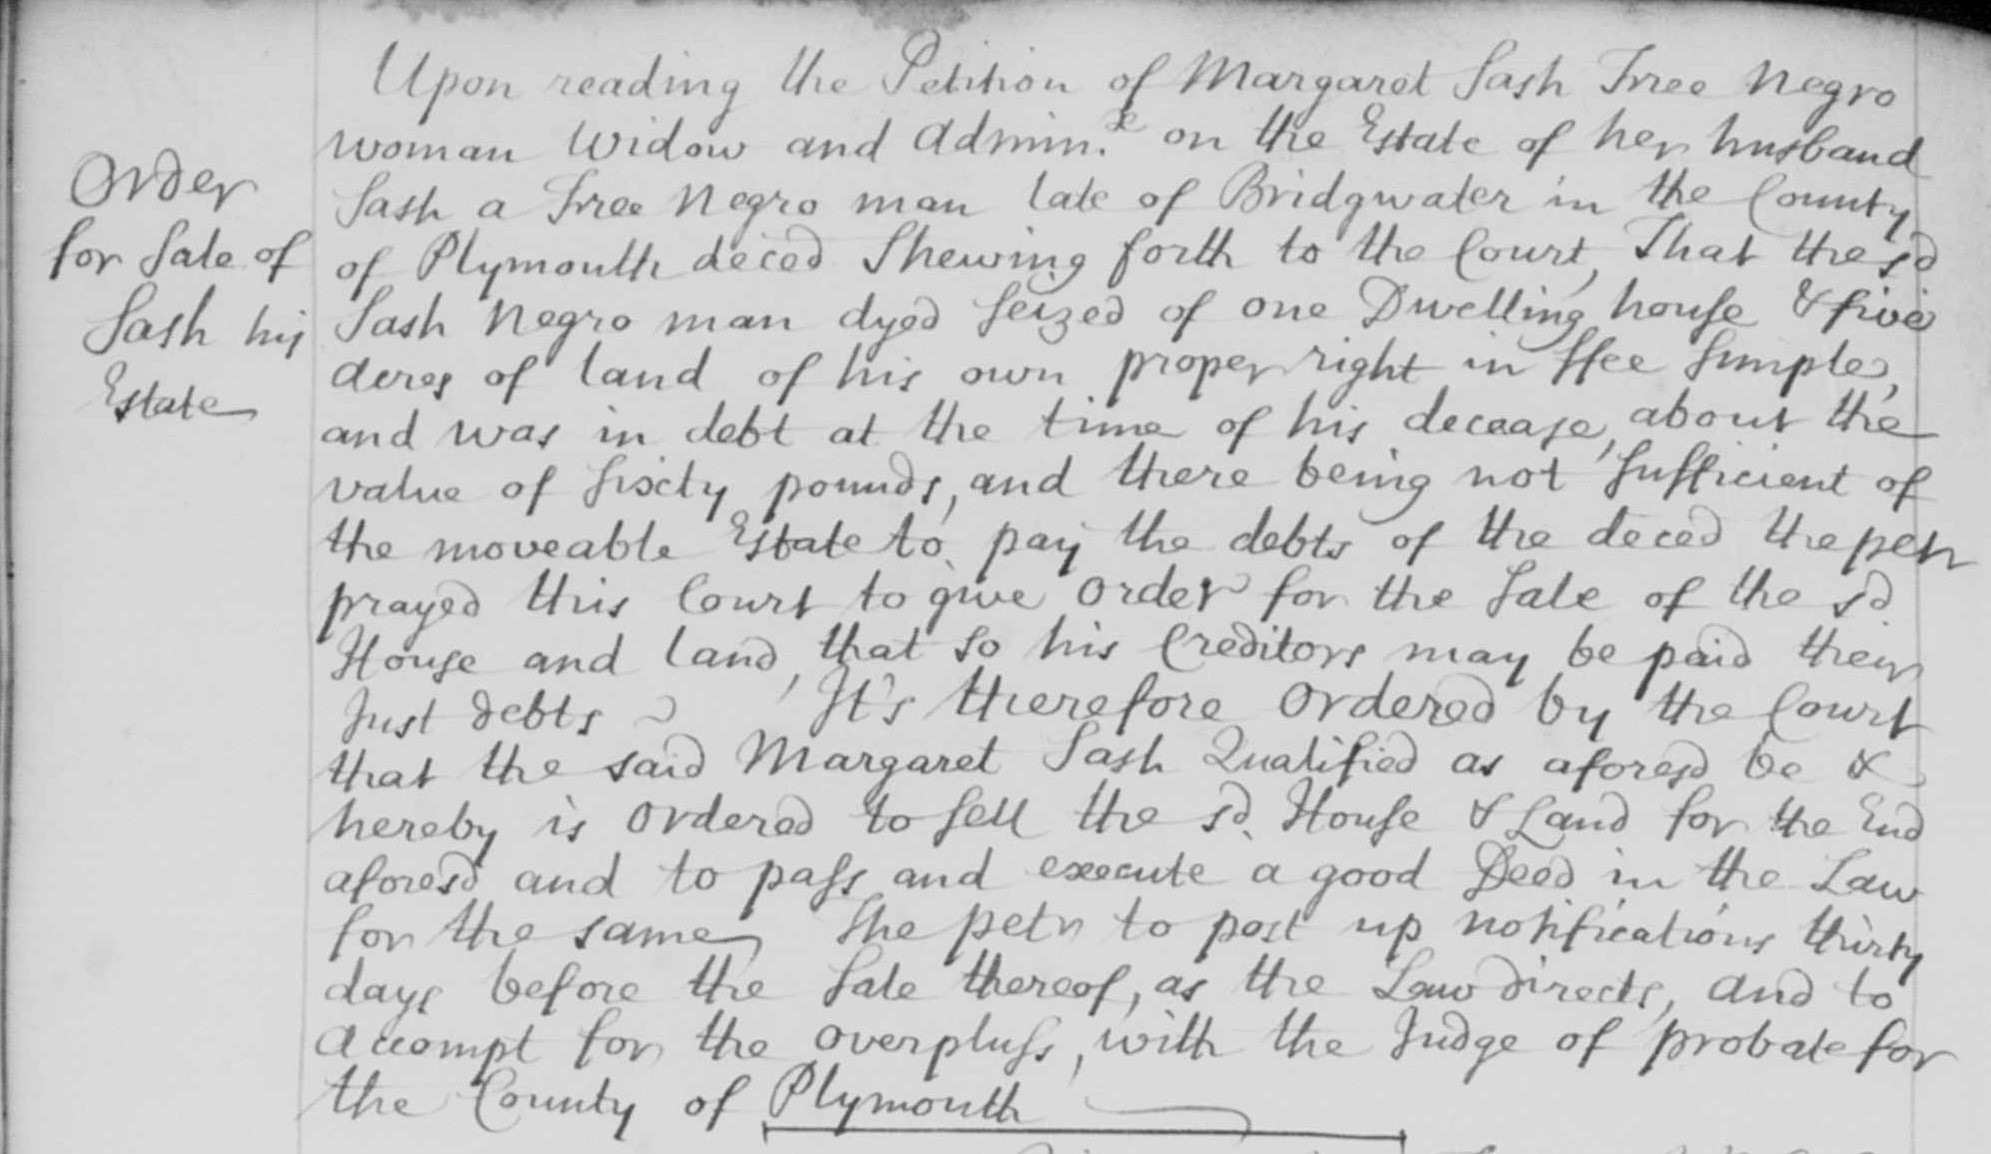 Upon reading the Petition of Margaret Sash Free Negro
woman Widow and Admin.x on the Estate of her husband
Order
Sash a Free Negro man late of Bridgwater in the County
for Sale of
of Plymouth deced Shewing forth to the Court, That the sd
Sash his
Sash Negro man dyed Seized of one Dwelling house & five
Estate
acres of land of his own proper right in ffee Simple,
and was in debt at the time of his decease, about the
value of Sixty pounds, and there being not Sufficient of
the moveable Estate to pay the debts of the deced the petr
prayed this Court to give Order for the Sale of the sd
House and land, that so his Creditors may be paid their
Just debts It's therefore Ordered by the Court
that the said Margaret Sash Qualified as aforesd be &
hereby is Ordered to Sell the sd. House & Land for the End
aforesd and to pass and execute a good Deed in the Law
for the same, She petr to post up notifications thirty
days before the Sale thereof, as the Law directs, and to
accompt for the overpluss, with the Judge of probate for
the County of Plymouth